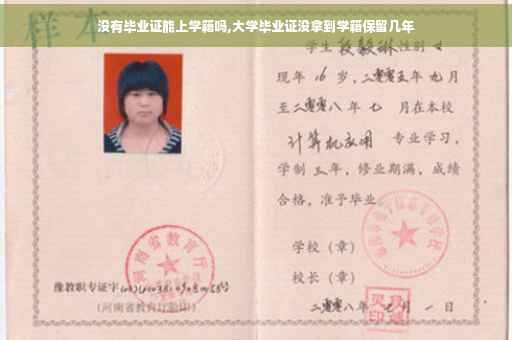 没有毕业证能上学籍吗,大学毕业证没拿到学籍保留几年
样本
学生 段毅琳 性别 女
现年 16 岁,二零零五年 九月
至二零零八年 七 月在本校
计算机应用 专业学习,
学制 三年,修业期满,成绩
合格,准予毕业
学校(章)
校长(章)
二零零八年 月 一 日
河南省教育厅
豫教职专证字
(河南省教育厅验印)